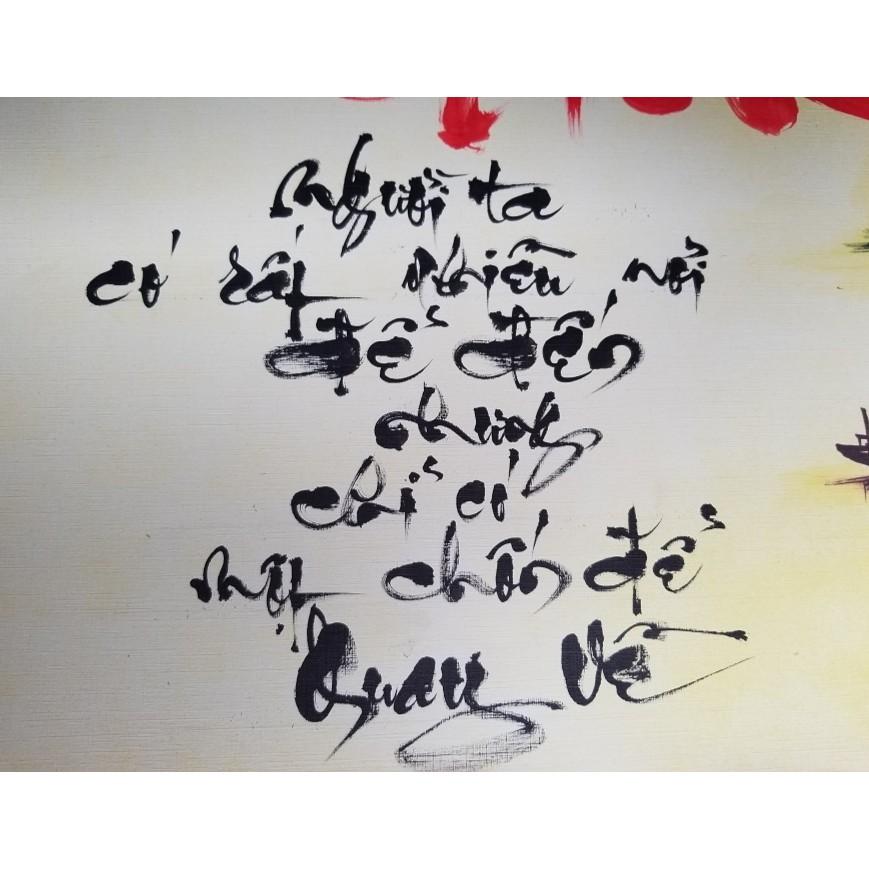 Người ta
có rất nhiều nơi
để đến
nhưng
chỉ có
một chốn để
Quay Về